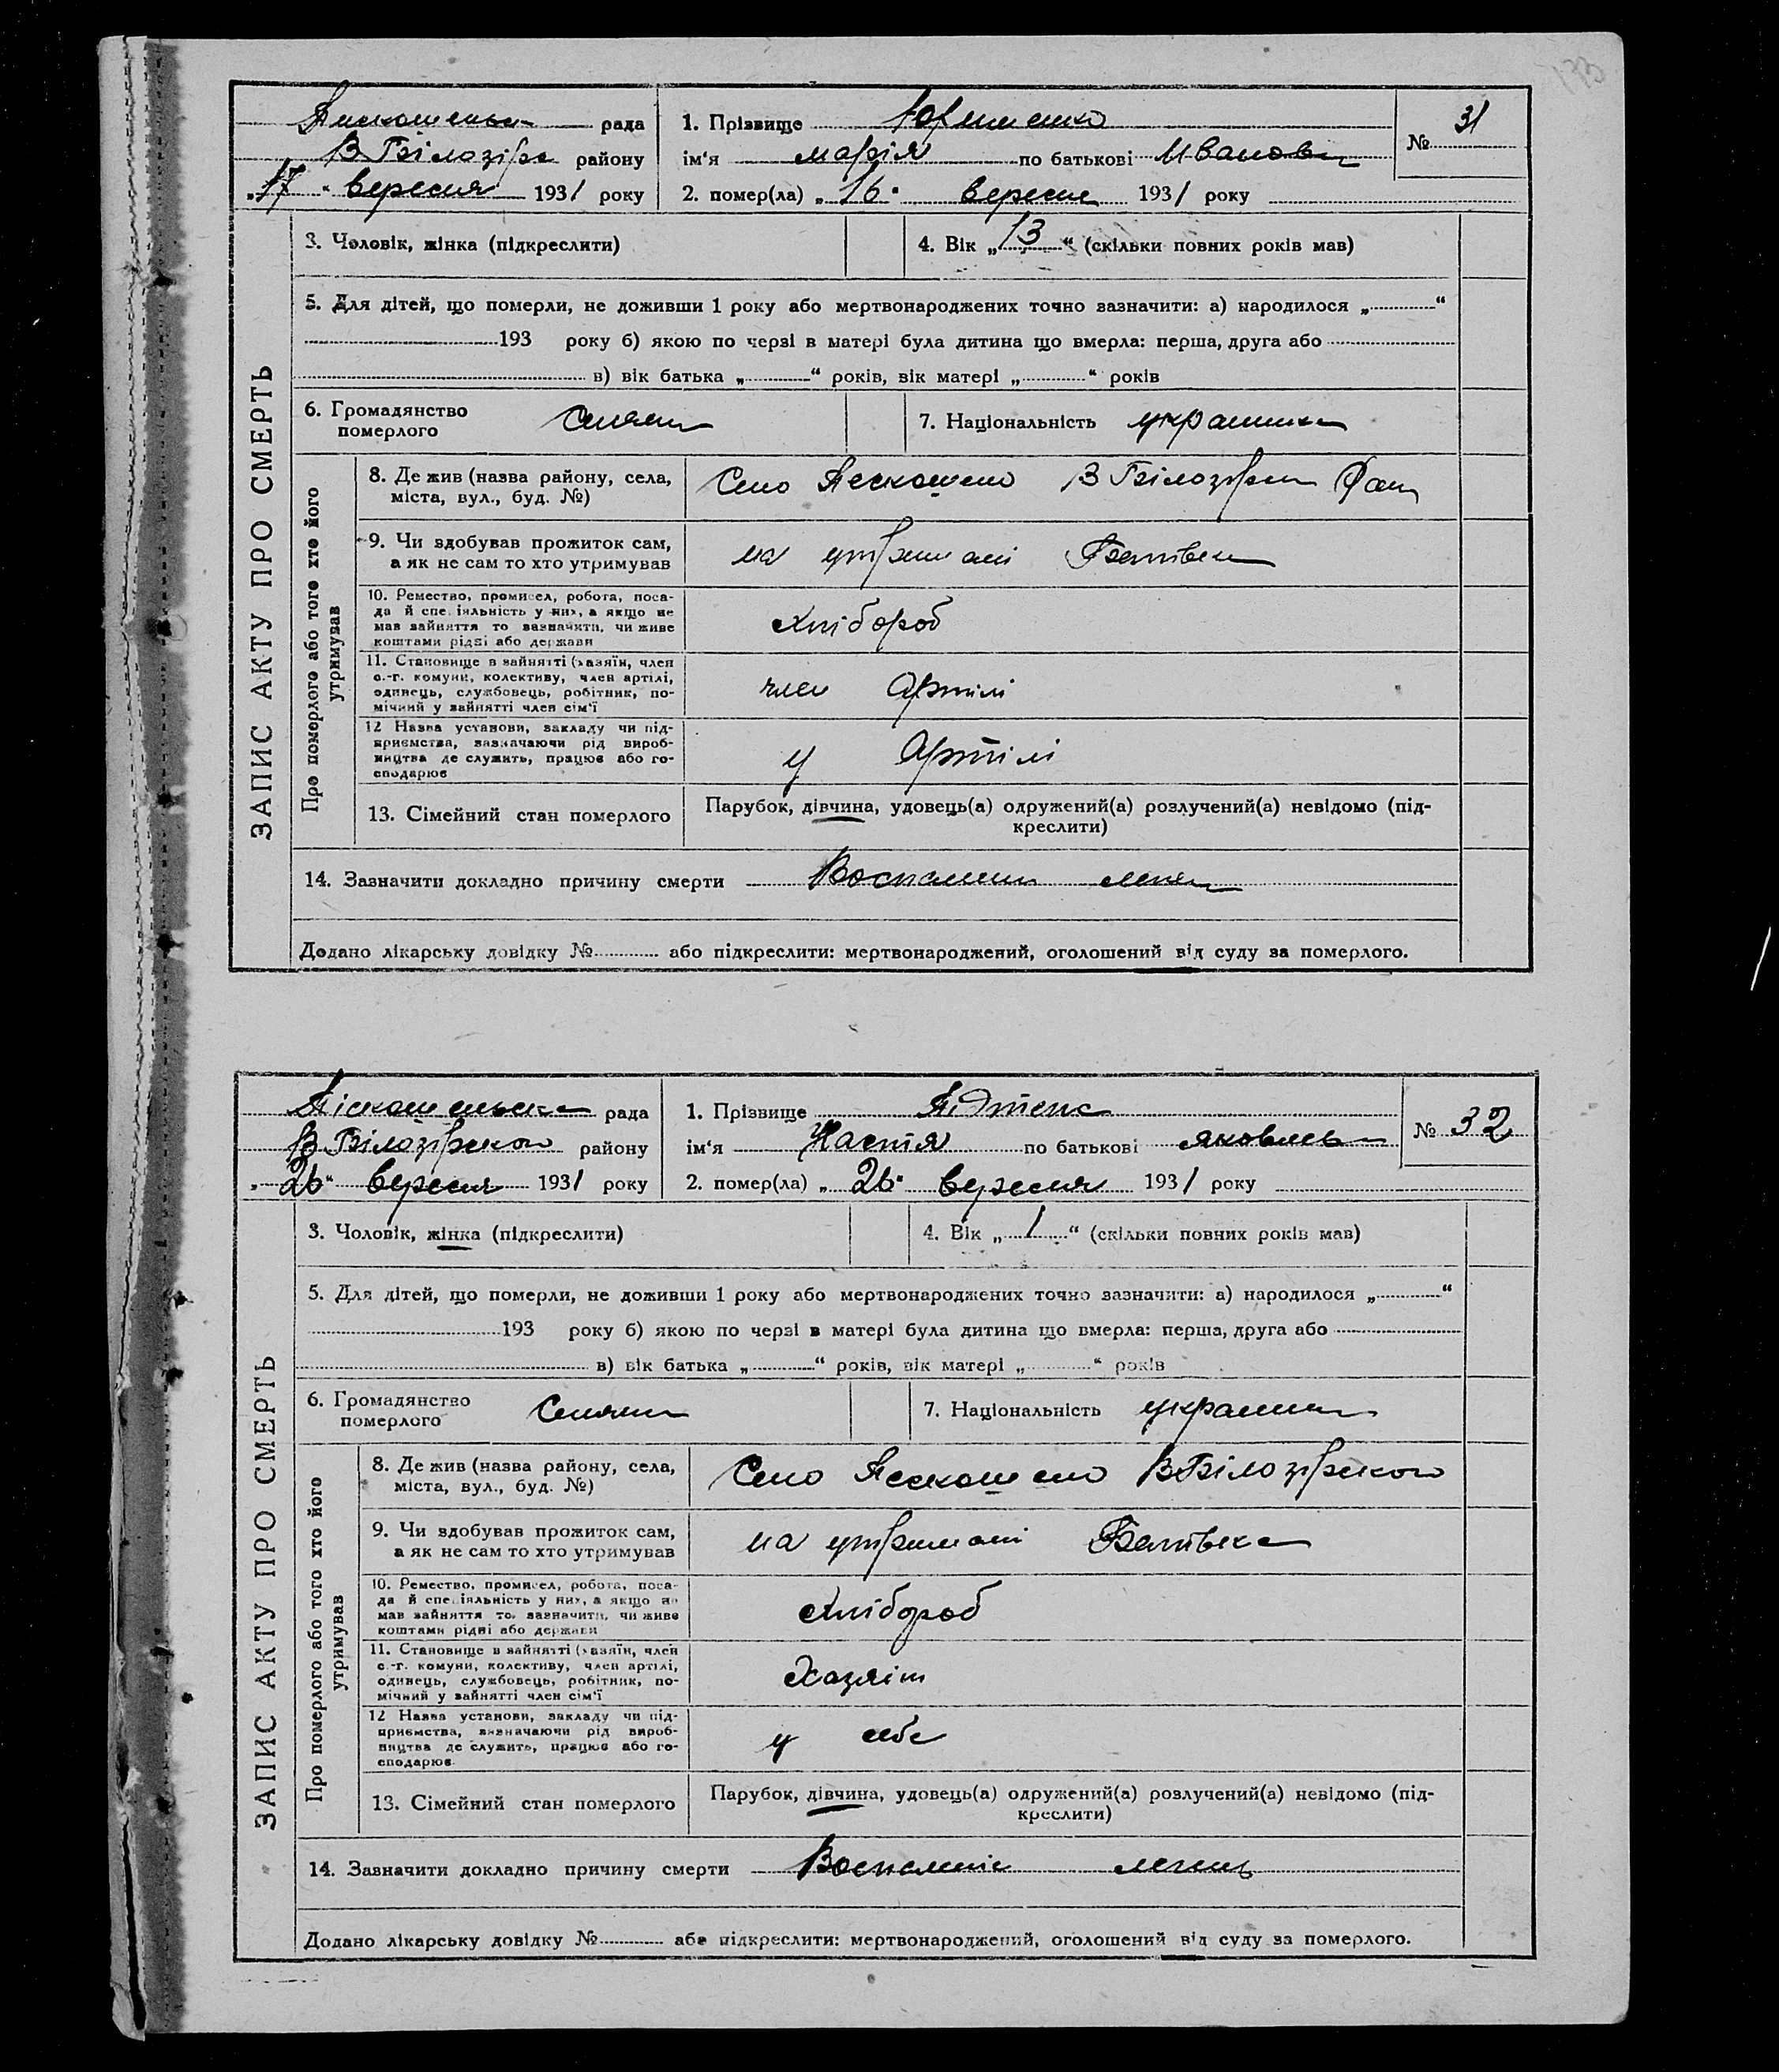 173
рада
В Білозірк району
„17“ вересня 1931 року
1. Прізвище
ім'я Марія по батькові Иванов
2. помер(ла) „16“ вересн 1931 року
№ 31
ЗАПИС АКТУ ПРО СМЕРТЬ
3. Чоловік, жінка (підкреслити)
4. Вік „13“ (скільки повних років мав)
5. Для дітей, що померли, не доживши 1 року або мертвонароджених точно зазначити: а) народилося „ “
193 року б) якою по черзі в матері була дитина що вмерла: перша, друга або
в) вік батька „ “ років, вік матері „ “ років
6. Громадянство
померлого
Селян
7. Національність украинк
Про померлого або того хто його
утримував
8. Де жив (назва району, села,
міста, вул., буд. №)
Село Пескошено В Білозірськ Рай
9. Чи здобував прожиток сам,
а як не сам то хто утримував
на утримані Батьвка
10. Ремество, промисел, робота, поса-
да й спеціяльність у них, а якщо не
мав зайняття то зазначити, чи живе
коштами рідні або держави
хлібороб
11. Становище в зайнятті (хазяїн, член
с.-г. комуни, колективу, член артілі,
одинець, службовець, робітник, по-
мічний у зайнятті член сім'ї
член Артілі
12 Назва установи, закладу чи під-
приємства, зазначаючи рід вироб-
ництва де служить, працює або го-
сподарює
у Артілі
13. Сімейний стан померлого
Парубок, дівчина, удовець(а) одружений(а) розлучений(а) невідомо (під-
креслити)
14. Зазначити докладно причину смерти Воспалени легк
Додано лікарську довідку № або підкреслити: мертвонароджений, оголошений від суду за померлого.
Піскошенська рада
В Білозірського району
„26“ вересня 1931 року
1. Прізвище
ім'я Настя по батькові яковлевн
2. помер(ла) „26“ вересня 1931 року
№ 32
ЗАПИС АКТУ ПРО СМЕРТЬ
3. Чоловік, жінка (підкреслити)
4. Вік „1“ (скільки повних років мав)
5. Для дітей, що померли, не доживши 1 року або мертвонароджених точно зазначити: а) народилося „ “
193 року б) якою по черзі в матері була дитина що вмерла: перша, друга або
в) вік батька „ “ років, вік матері „ “ років
6. Громадянство
померлого
Селян
7. Національність украинк
Про померлого або того хто його
утримував
8. Де жив (назва району, села,
міста, вул., буд. №)
Село Пескошено В Білозірского
9. Чи здобував прожиток сам,
а як не сам то хто утримував
на утримані Батьвка
10. Ремество, промисел, робота, поса-
да й спеціяльність у них, а якщо не
мав зайняття то зазначити, чи живе
коштами рідні або держави
хлібороб
11. Становище в зайнятті (хазяїн, член
с.-г. комуни, колективу, член артілі,
одинець, службовець, робітник, по-
мічний у зайнятті член сім'ї
Хазяін
12 Назва установи, закладу чи під-
приємства, зазначаючи рід вироб-
ництва де служить, працює або го-
сподарює
у себе
13. Сімейний стан померлого
Парубок, дівчина, удовець(а) одружений(а) розлучений(а) невідомо (під-
креслити)
14. Зазначити докладно причину смерти Воспаленіє легких
Додано лікарську довідку № або підкреслити: мертвонароджений, оголошений від суду за померлого.